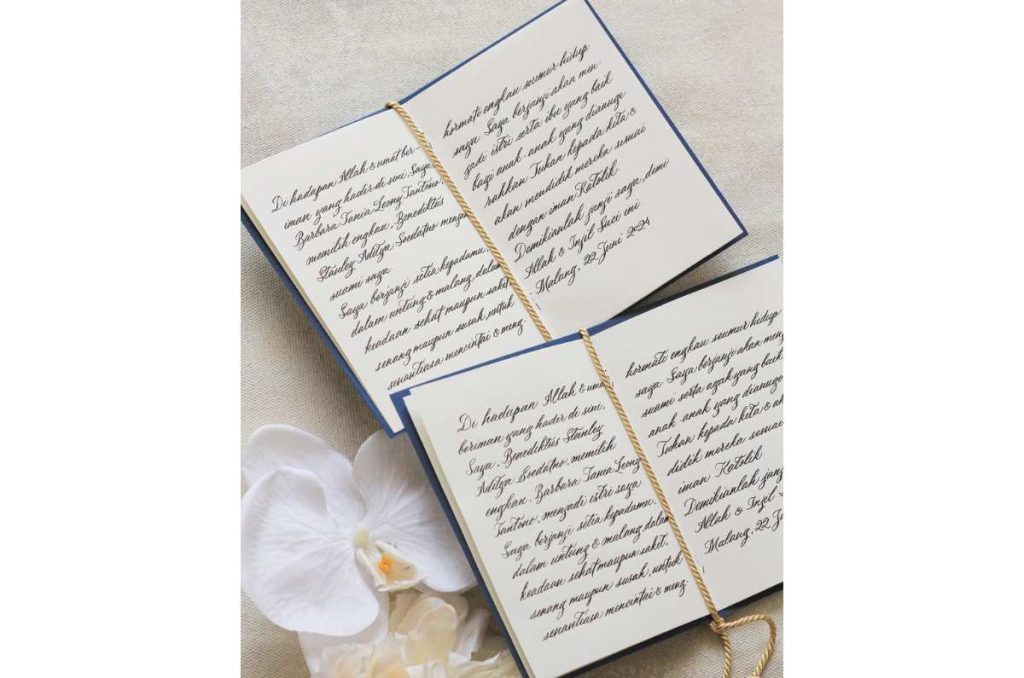 Di hadapan Allah & umat ber-
iman yang hadir di sini, Saya,
Barbara Tania Leony Tantono,
memilih engkau, Benediktus
Stanley Aditya Soedutno menjadi
suami saya.
Saya berjanji setia kepadamu,
dalam untung & malang, dalam
keadaan sehat maupun sakit
senang maupun susah, untuk
senantiasa mencintai & meng-
hormati engkau seumur hidup
saya. Saya berjanji akan men-
jadi istri serta ibu yang baik
bagi anak-anak yang dianuge
rahkan Tuhan kepada kita &
akan mendidik mereka sesuai
dengan iman Katolik.
Demikianlah janji saya, demi
Allah & Injil Suci ini
Malang, 22 Juni 2024
Di hadapan Allah & umat
beriman yang hadir di sini,
Saya, Benediktus Stanley
Aditya Soedutno, memilih
engkau, Barbara Tania Leony
Tantono, menjadi istri saya
Saya berjanji setia kepadamu,
dalam untung & malang, dalam
keadaan sehat maupun sakit,
senang maupun susah, untuk
senantiasa mencintai & meng
hormati engkau seumur hidup
saya. Saya berjanji akan menj
suami serta ayah yang baik
anak-anak yang dianuge
Tuhan kepada kita & ak
didik mereka sesuai
iman Katolik
Demikianlah janj
Allah & Injil
Malang, 22 J